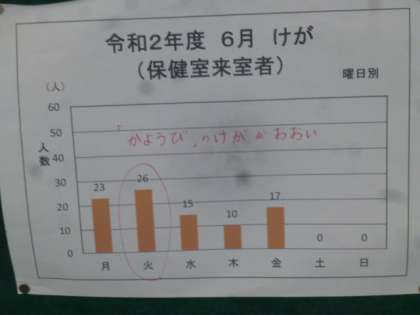 令和2年度 6月 けが
(保健室来室者)
曜日別
(人)
人数
60
50
40
30
20
10
0
「かようび」のけががおおい
23
26
15
10
17
0
0
月 火 水 木 金 土 日